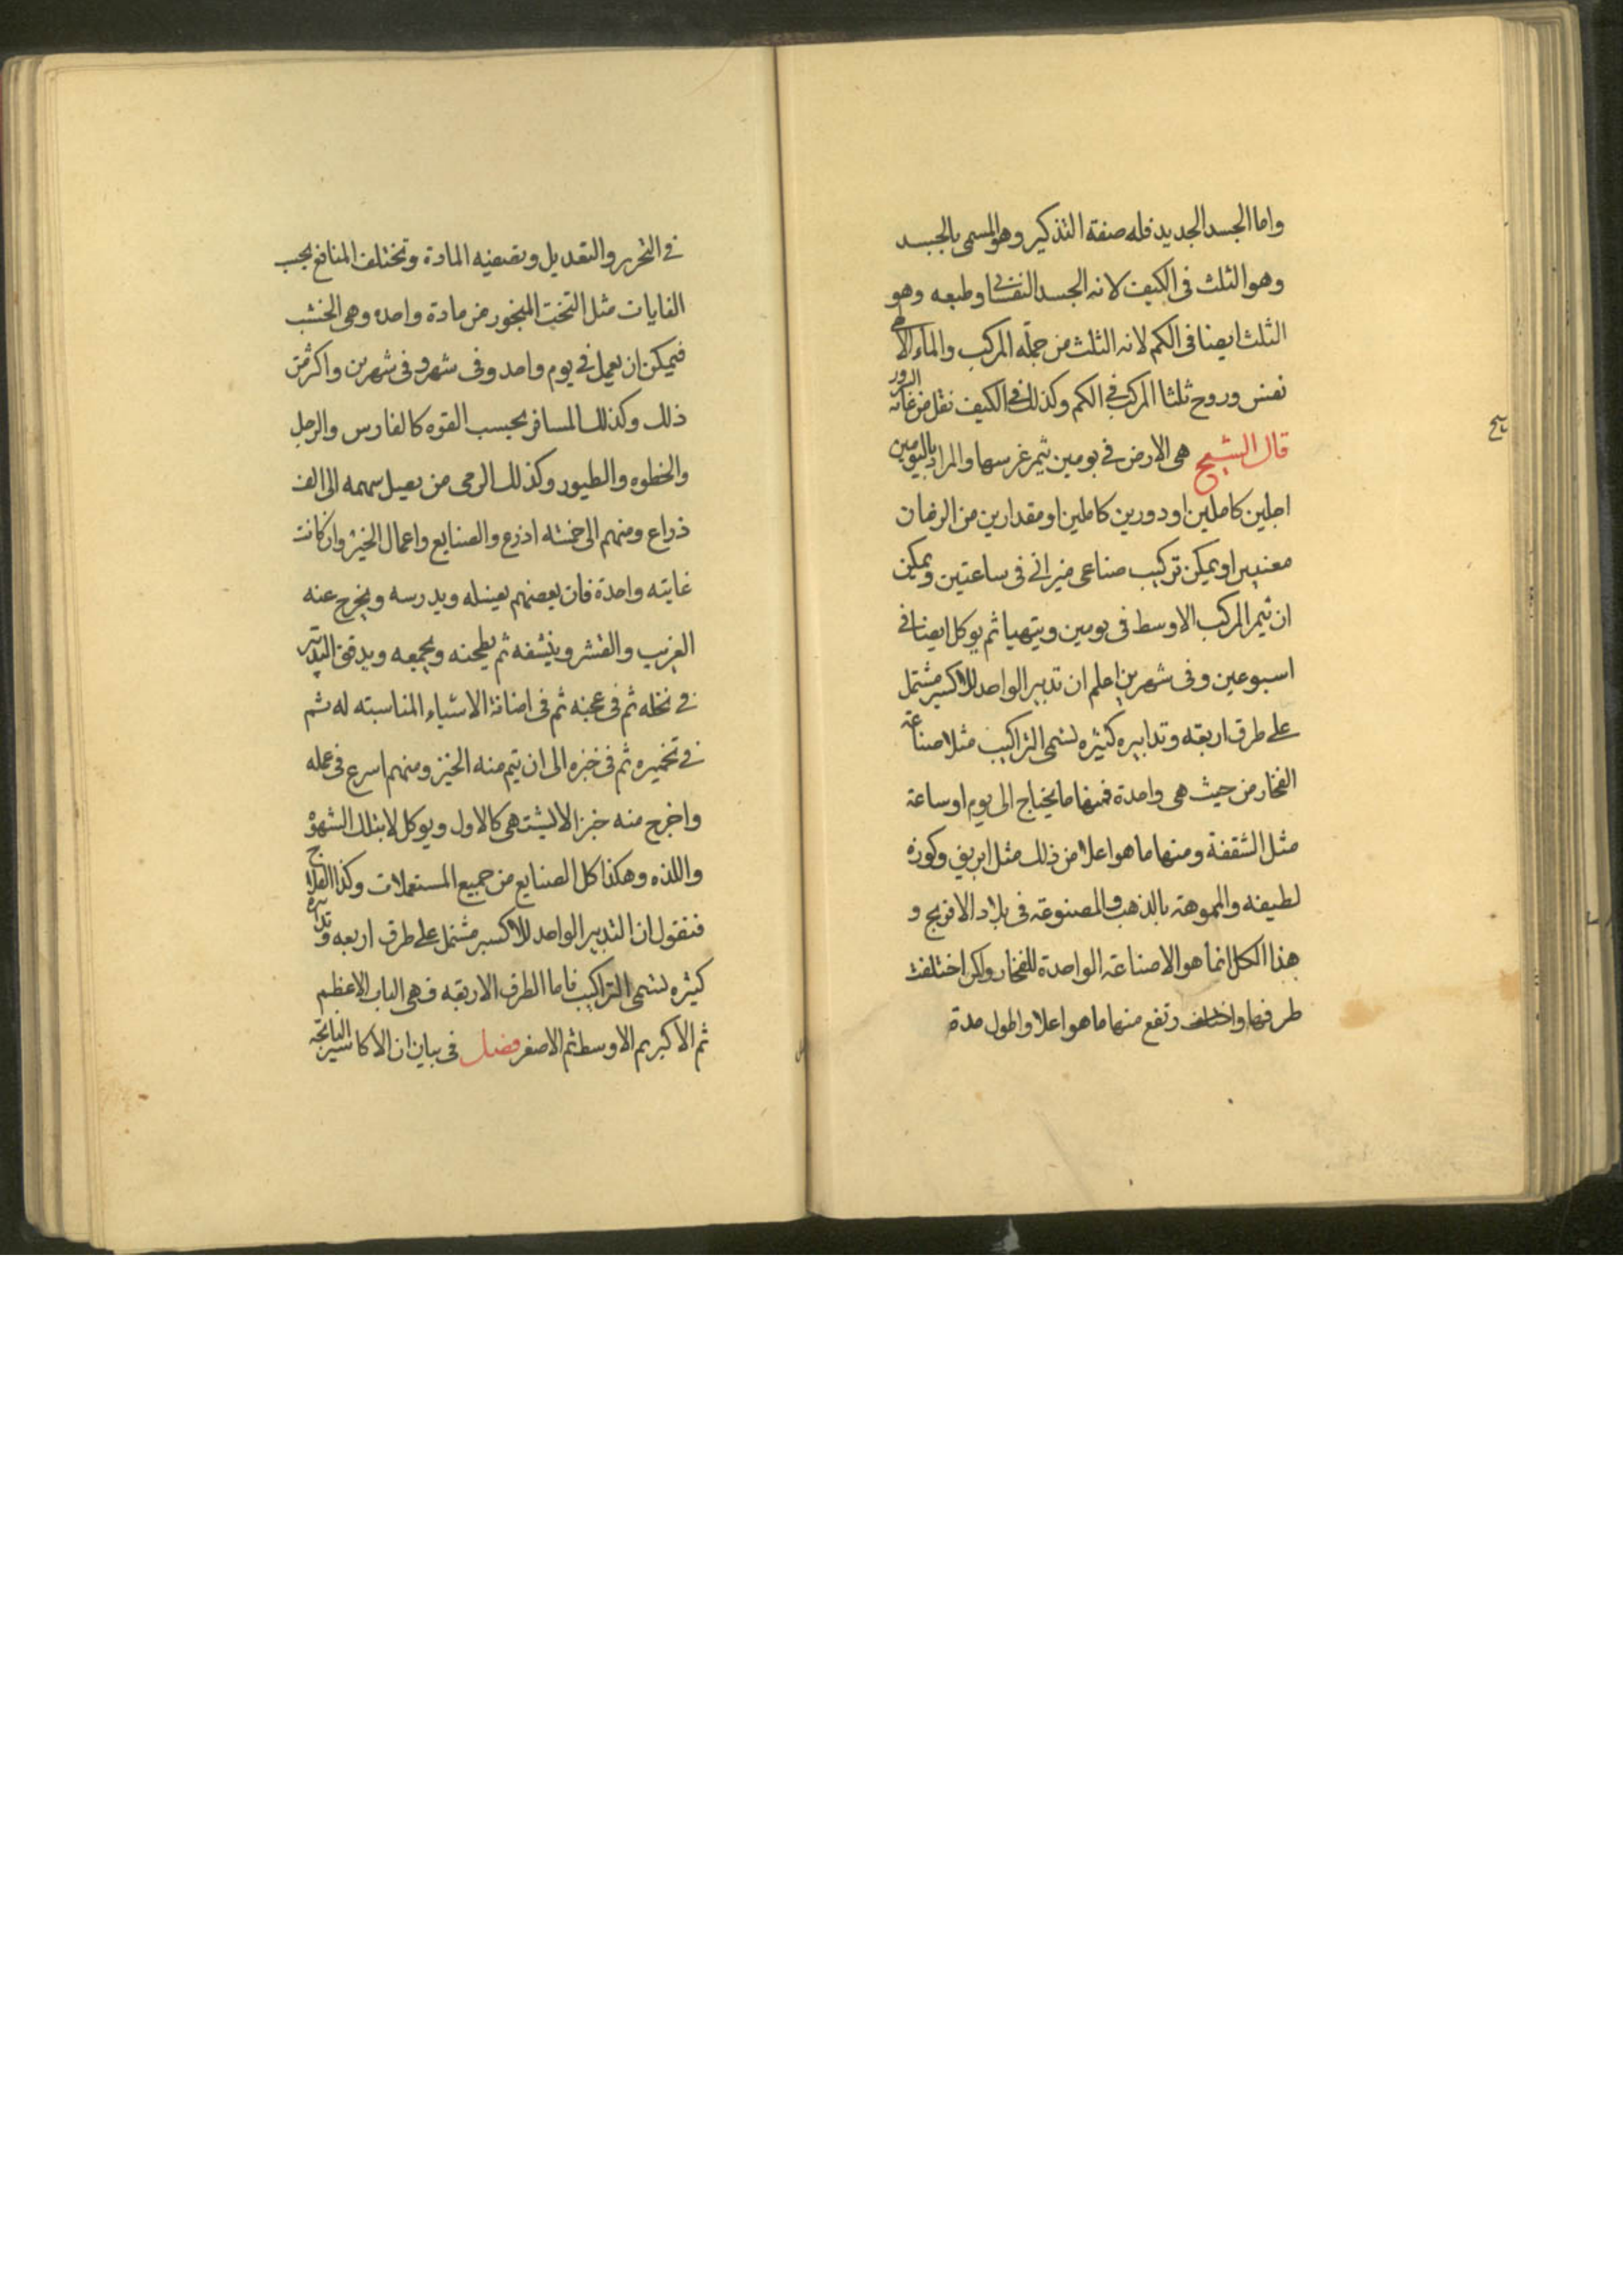 واما الجسد الجديد فله صفة التذكير وهو المسمى بالجسد
وهو الثلث فى الكيف لانه الجسد النفسانى وطبعه وهو
الثلث ايضا فى الكم لانه الثلث من جملة المركب والماء الالهى
نفس وروح ثلثا المركب فى الكم وكذلك فى الكيف نقل من غاية السرور
قال الشيخ هى الارض فى يومين يثمر غرسها والمراد باليومين
اجلين كاملين او دورين كاملين او مقدارين من الزمان
معتبرين او يمكن تركيب صناعى ميزانى فى ساعتين ويمكن
ان يثمر المركب الاوسط فى يومين ويتهيا ثم يوكل ايضا فى
اسبوعين وفى شهرين اعلم ان تدبير الواحد للاكسير مشتمل
على طرق اربعه وتدابيره كثيره تسمى التراكيب مثلا صناعة
الفخار من حيث هى واحدة فمنها ما يحتاج الى يوم او ساعة
مثل الشقفة ومنها ما هو اعلا من ذلك مثل ابريق وكوزه
لطيفه والمموهة بالذهب والمصنوعة فى بلاد الافرنج و
هذا الكل انما هو الاصناعة الواحدة للفخار ولكن اختلفت
طرقها واختلف وتقع منها ما هو اعلا واطول مدة
فى التحرير والتعديل وتصفيه المادة وتختلف المنافع بحسب
الغايات مثل التخت المنجور من مادة واحده وهى الخشب
فيمكن ان يعمل فى يوم واحد وفى شهر و فى شهرين واكثر من
ذلك وكذلك المسافر بحسب القوه كالفارس والرجل
والخطوه والطيور وكذلك الرمى من يصيل سهمه الى الف
ذراع ومنهم الى خمسه اذرع والصنايع واعمال الخبز وان كانت
غايته واحدة فان بعضهم يغسله ويدرسه ويخرج عنه
الغريب والقشر وينشفه ثم يطحنه ويجمعه ويدقق التدبير
فى نخله ثم فى عجنه ثم فى اضافة الاشياء المناسبته له ثم
فى تخميره ثم فى خبزه الى ان يتم منه الخبز ومنهم اسرع فى عمله
واخرج منه خبزا لا يشتهى كالاول ويوكل لا بتلك الشهوة
واللذه وهكذا كل الصنايع من جميع المستعملات وكذا العلاج
فنقول ان التدبير الواحد للاكسير مشتمل على طرق اربعه وتدابيره
كثيره تسمى التراكيب فاما الطرق الاربعه فهى الباب الاعظم
ثم الاكبر ثم الاوسط ثم الاصغر فصل فى بيان ان الاكاسير